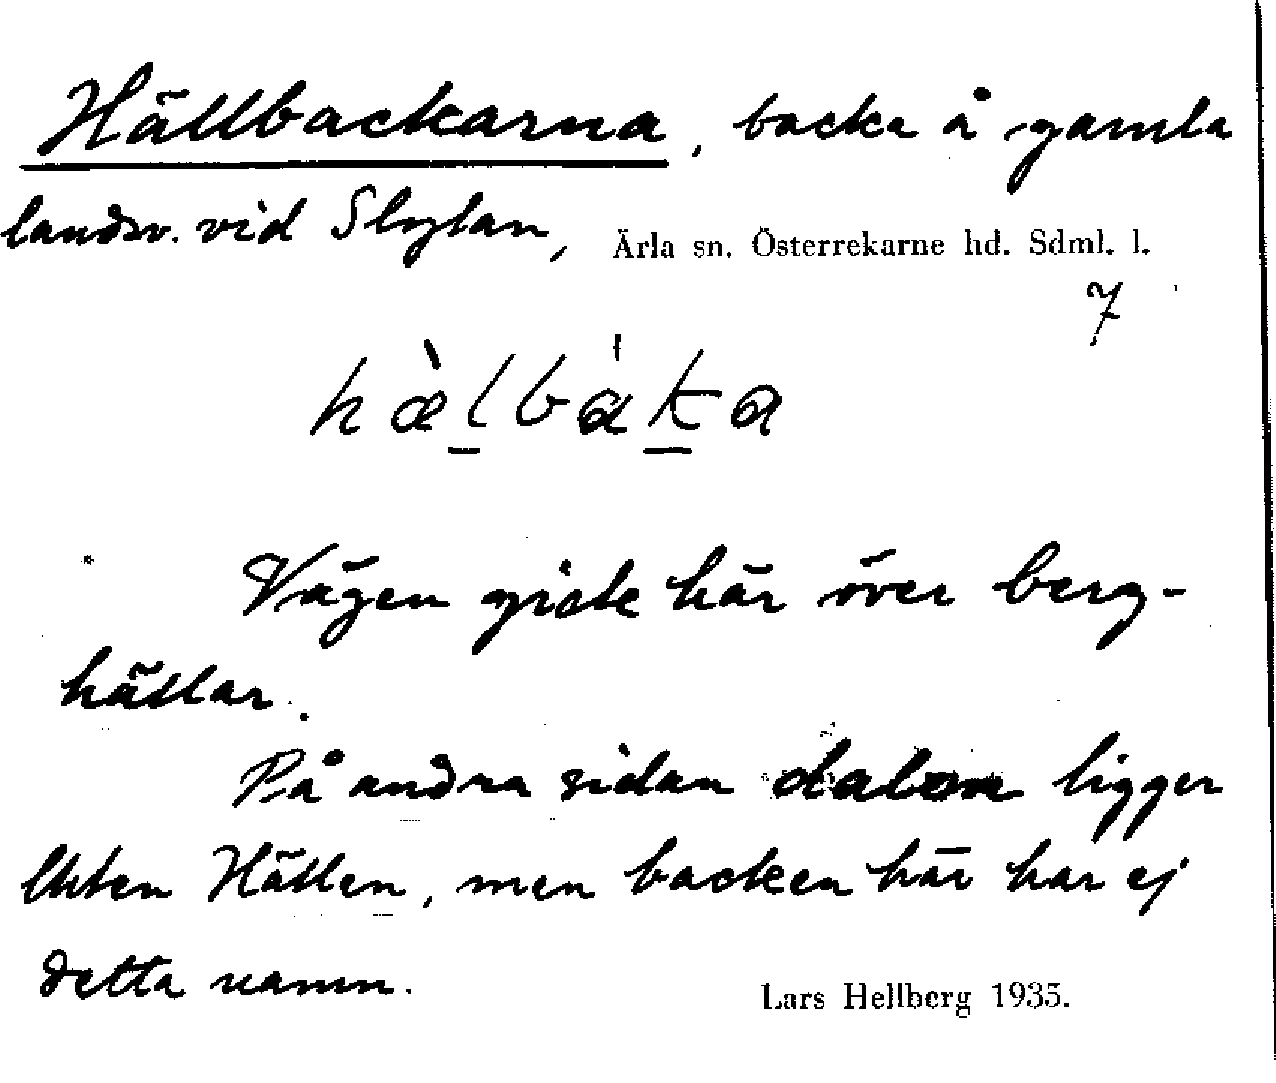 Hällbackarna, backe å gamla
landsv. vid Slytan, Ärla sn. Österrekarne hd. Sdml. l.
7
hæ̀lbáka
Vägen gick här över berg-
hällar.
På andra sidan dalen ligger
Hällen, men backen här har ej
detta namn.
Lars Hellberg 1935.